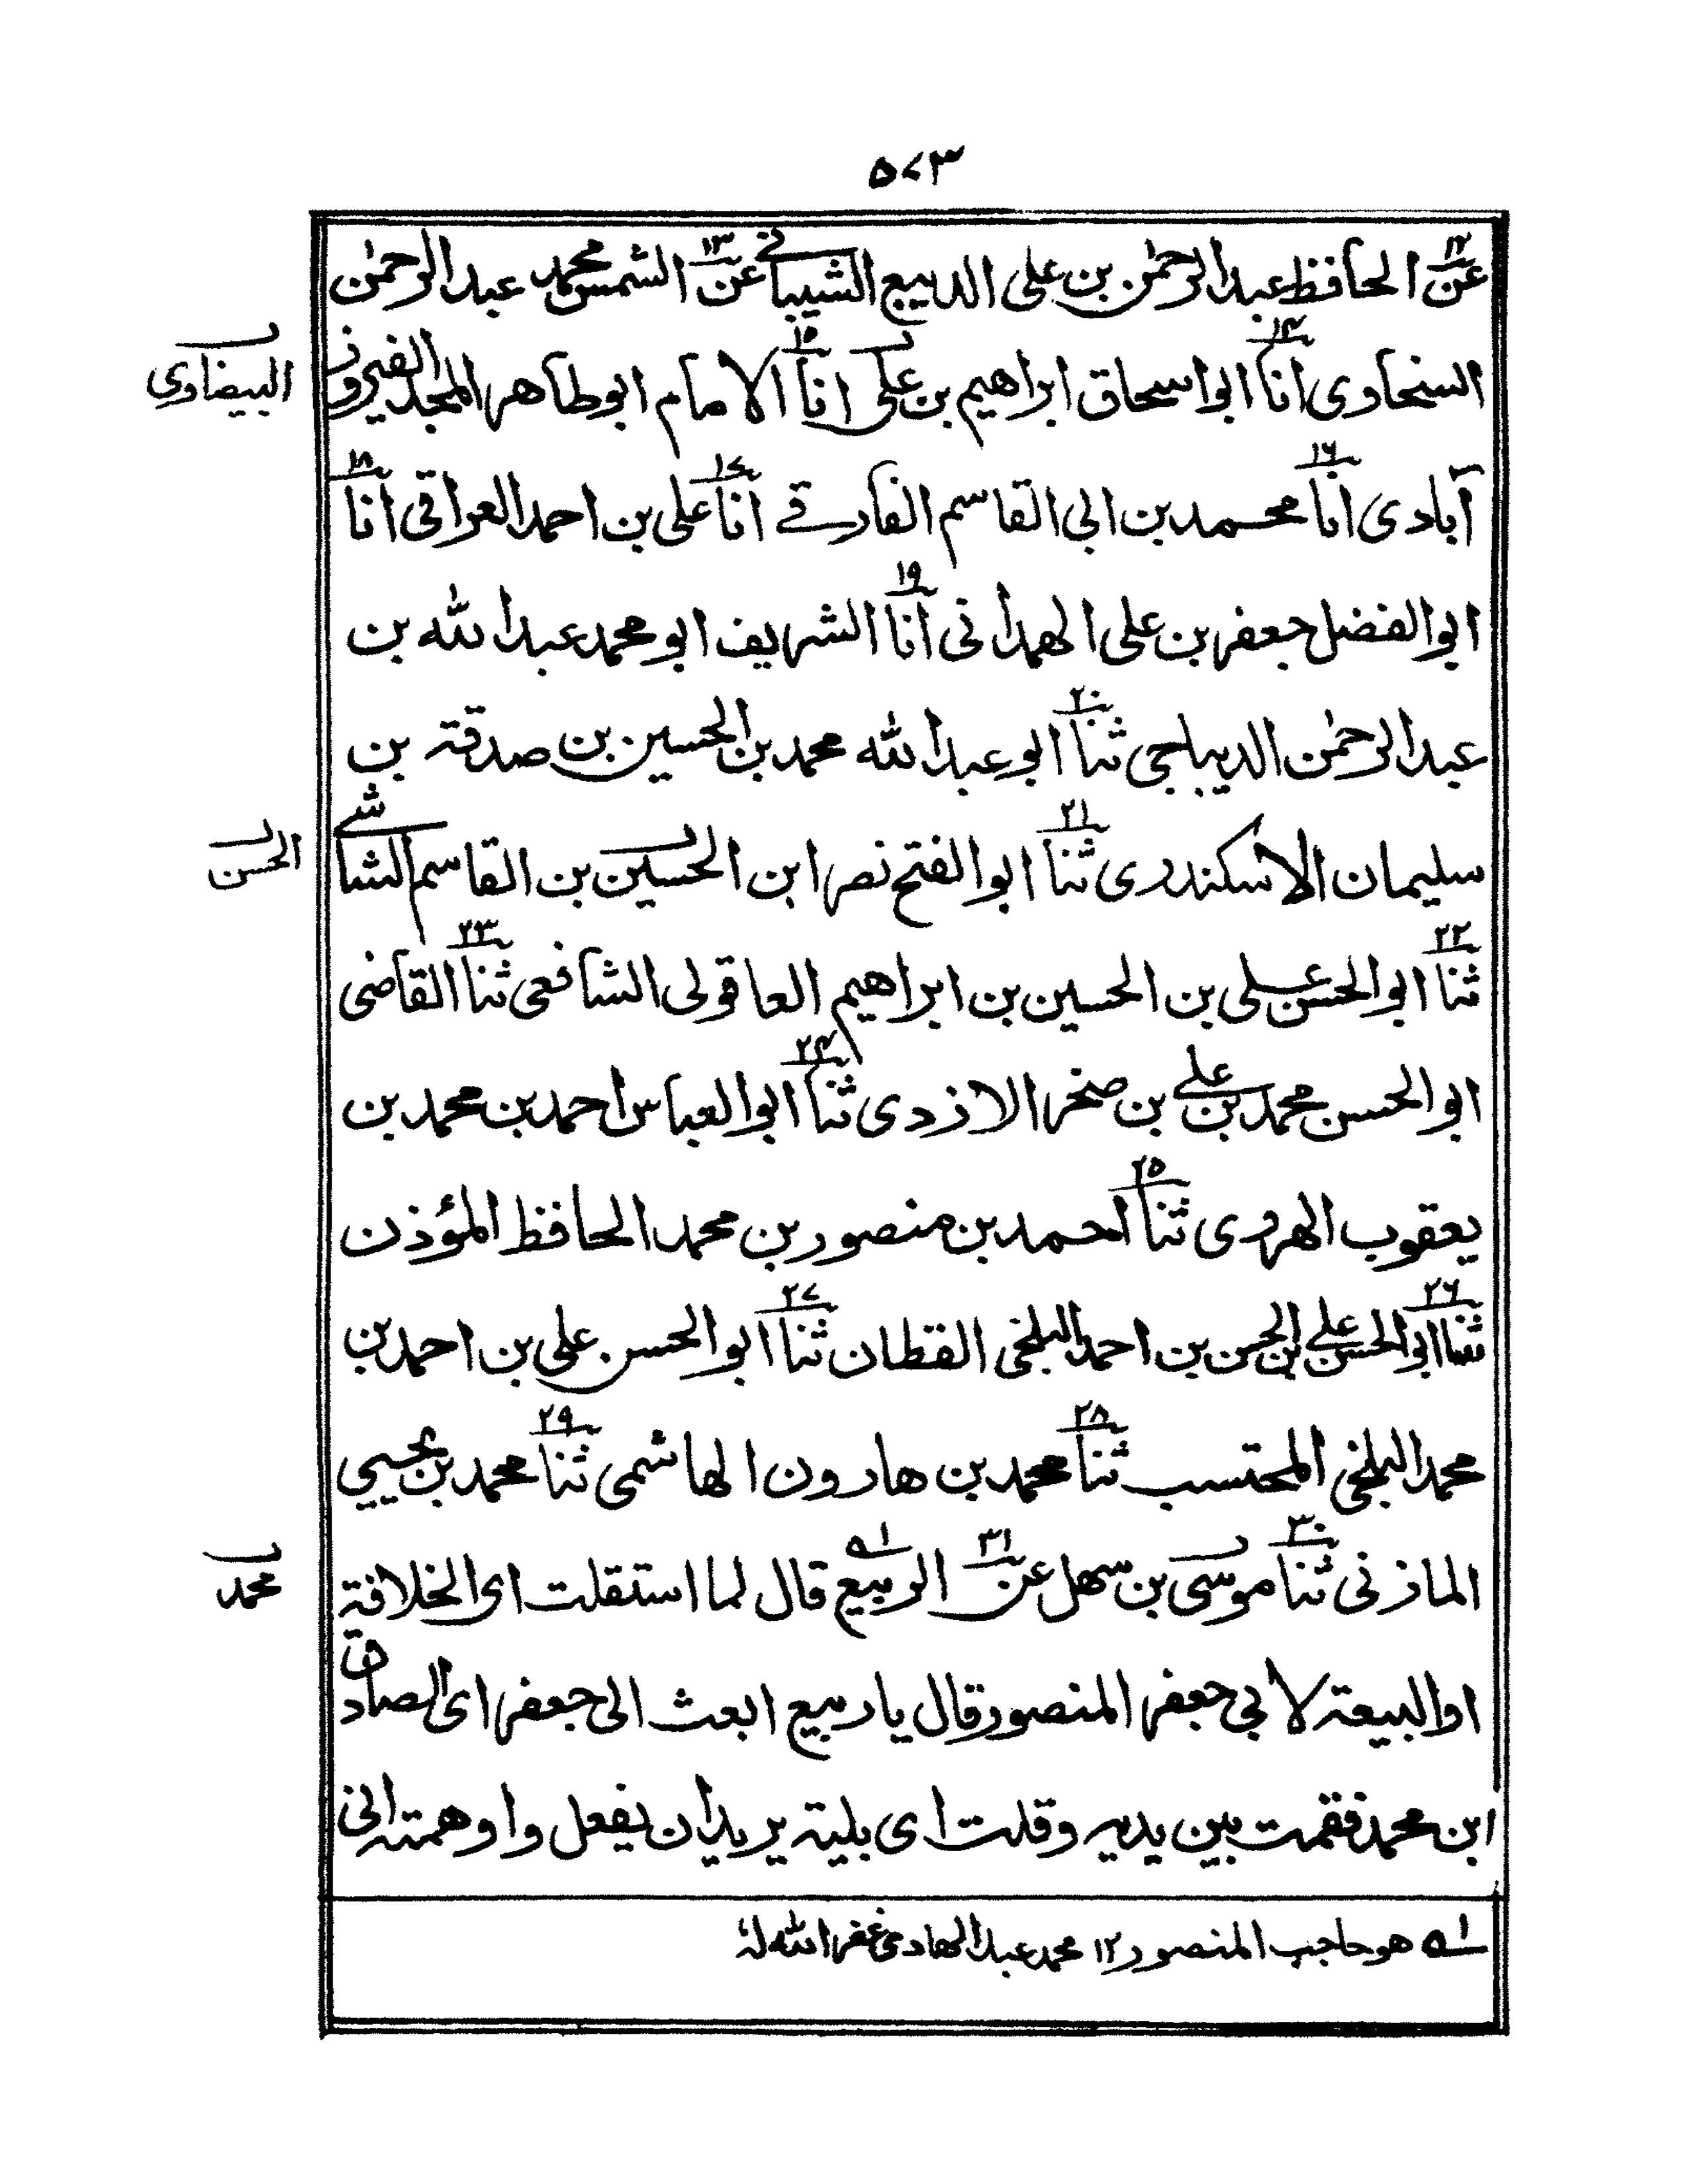 ٥٧٣
عن١٢ الحافظ عبد الرحمٰن بن علی الدیبع الشیبانی عن١٣ الشمس محمد عبد الرحمٰن
السخاوی انا١٤ ابو اسحاق ابراهیم بن علی انا١٥ الامام ابو طاهر المجد الفیروز
البیضاوی
آبادی انا١٦ محمد بن ابی القاسم الفارقی انا١٧ علی بن احمد العراقی انا١٨
ابو الفضل جعفر بن علی الهمدانی انا١٩ الشریف ابو محمد عبد الله بن
عبد الرحمٰن الدیباجی ثنا٢٠ ابو عبد الله محمد بن الحسین بن صدقة بن
سلیمان الاسکندری ثنا٢١ ابو الفتح نصر ابن الحسین بن القاسم الشاشی
الحسن
ثنا٢٢ ابو الحسن علی بن الحسین بن ابراهیم العاقولی الشافعی ثنا٢٣ القاضی
ابو الحسن محمد بن علی بن صخر الازدی ثنا٢٤ ابو العباس احمد بن محمد بن
یعقوب الهروی ثنا٢٥ احمد بن منصور بن محمد الحافظ المؤذن
ثنا٢٦ ابو الحسن علی بن الحسن بن احمد البلخی القطان ثنا٢٧ ابو الحسن علی بن احمد بن
محمد البلخی المحتسب ثنا٢٨ محمد بن هارون الهاشمی ثنا٢٩ محمد بن یحیی
المازنی ثنا٣٠ موسی بن سهل عن٣١ الربیع ١ه قال لما استقلت ای الخلافة
محمد
او البیعة لابی جعفر المنصور قال یا ربیع ابعث الی جعفر ای الصادق
ابن محمد فقمت بین یدیه وقلت ای بلیة یرید ان یفعل واوهمته انی
١ه هو حاجب المنصور ١٢ محمد عبد الهادی غفر الله لهٗ